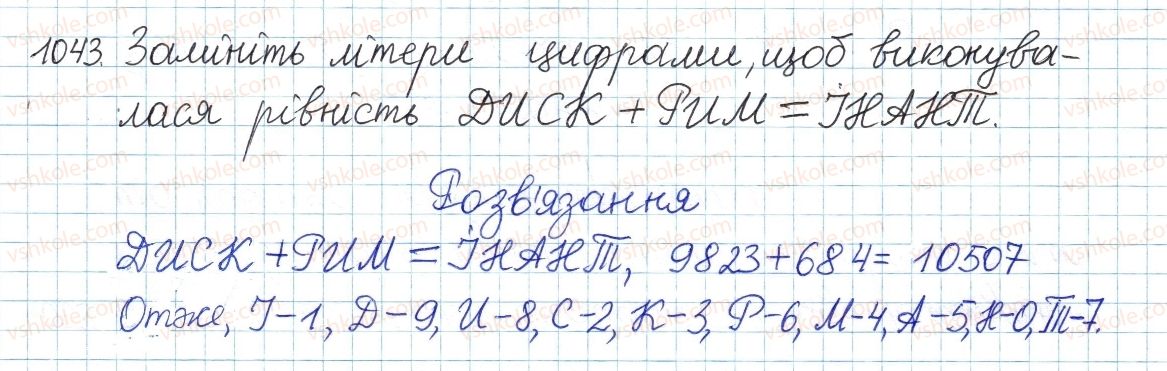 1043. Замініть літери цифрами, щоб виконува-
лася рівність ДИСК + РИМ = ІНАНТ.
Розв'язання
ДИСК + РИМ = ІНАНТ, 9823 + 684 = 10507
Отже, І-1, Д-9, И-8, С-2, К-3, Р-6, М-4, А-5, Н-0, Т-7.